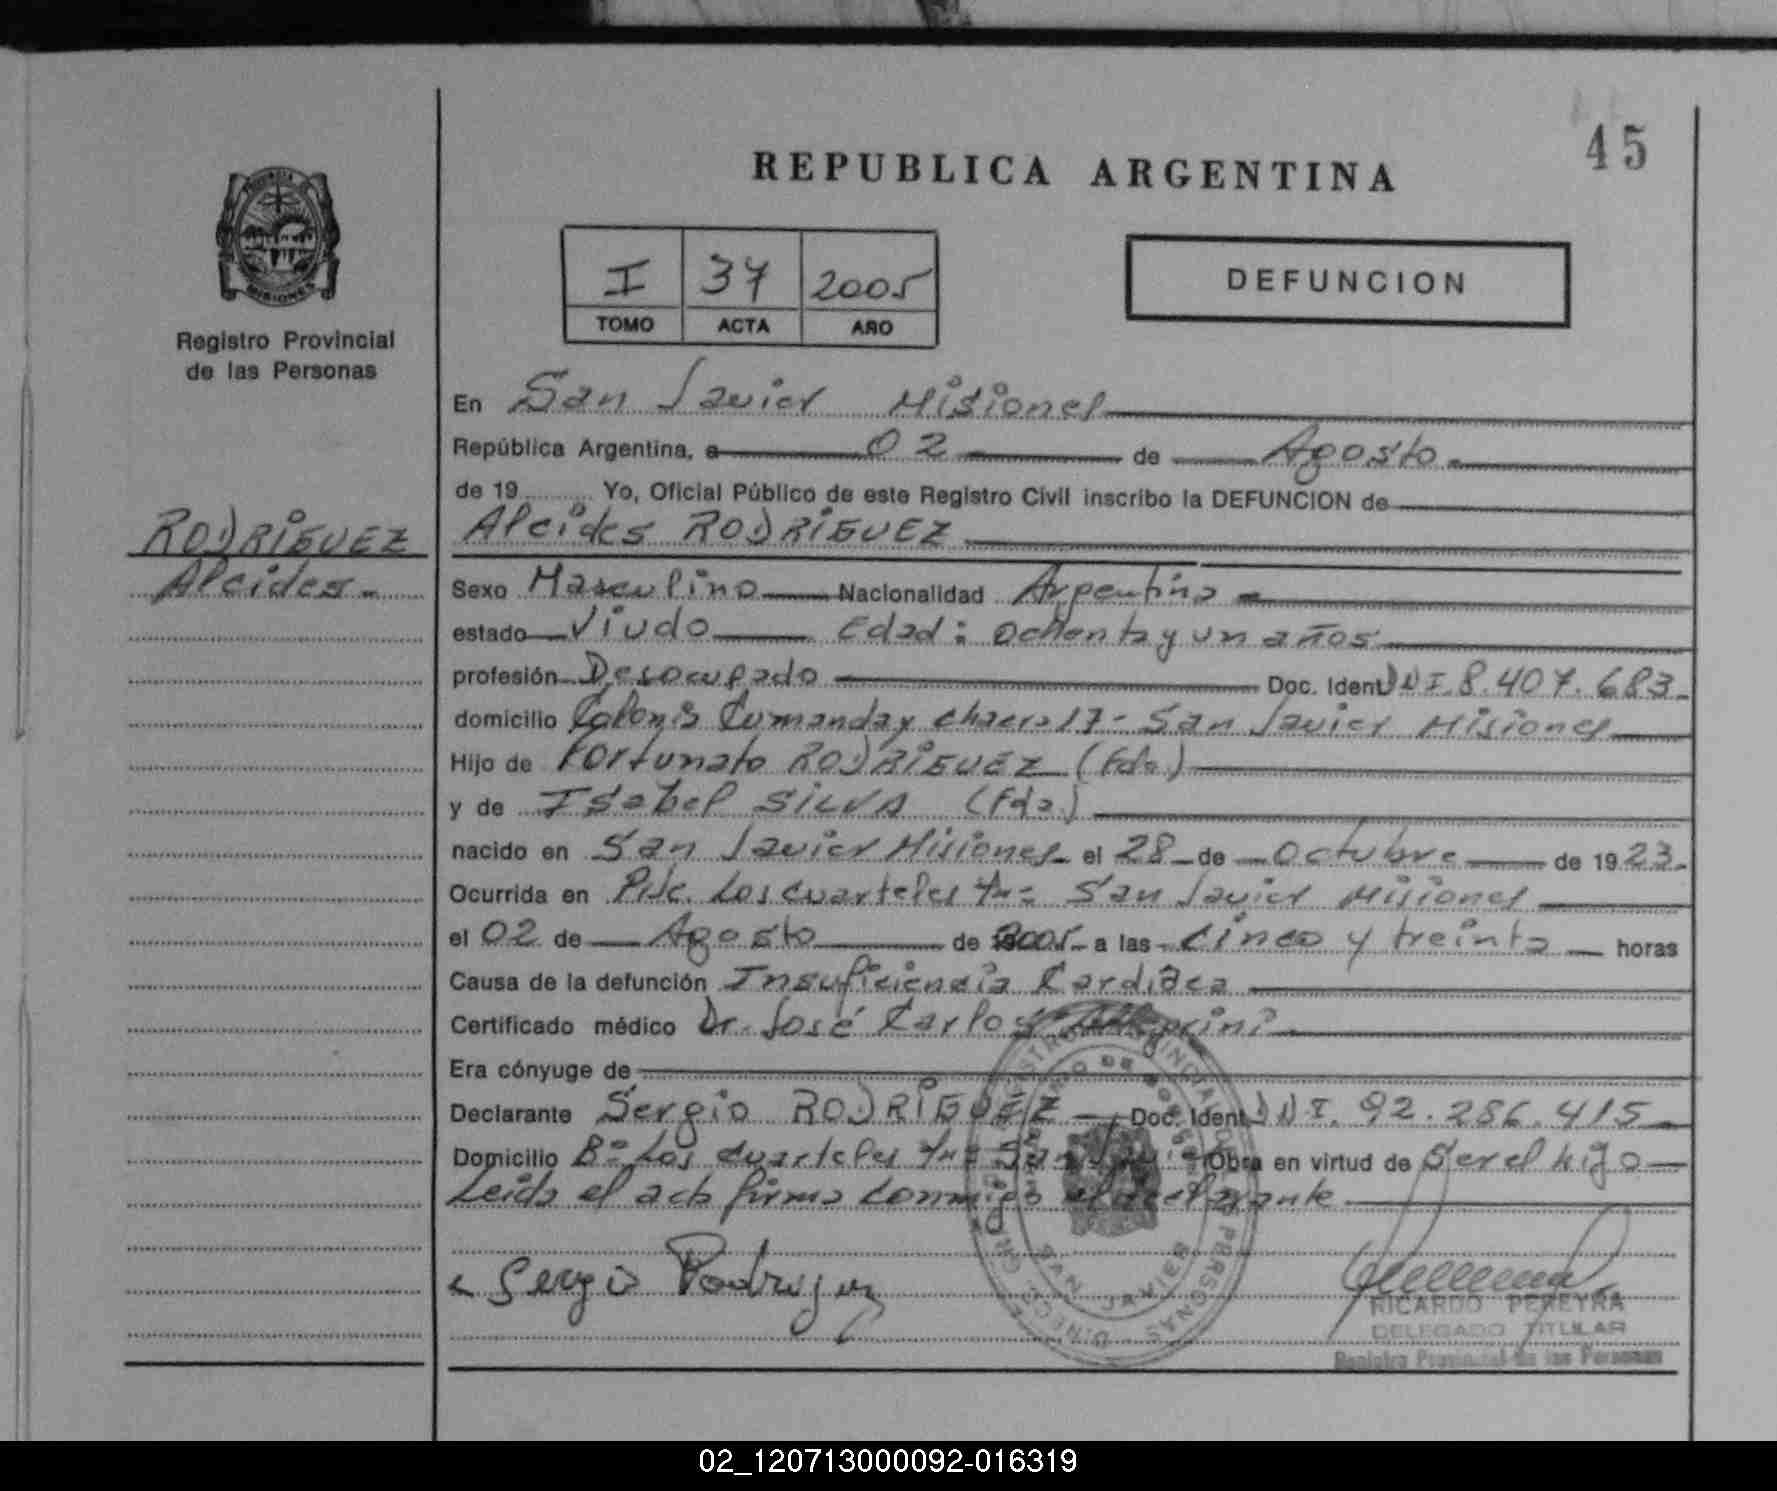 45
REPUBLICA ARGENTINA
PROVINCIA DE
MISIONES
I 37 2005
TOMO ACTA AÑO
DEFUNCION
Registro Provincial
de las Personas
RODRIGUEZ
Alcides.-
En San Javier Misiones
República Argentina, a 02 de Agosto.
de 19 Yo, Oficial Público de este Registro Civil inscribo la DEFUNCION de
Alcides RODRIGUEZ
Sexo Masculino Nacionalidad Argentina
estado Viudo Edad: ochenta y un años
profesión Desocupado Doc. Ident DNI. 8.407.683.
domicilio Colonia Cumanday chacra 17- San Javier Misiones
Hijo de Fortunato RODRIGUEZ (Fdo.)
y de Isabel SILVA (Fda.)
nacido en San Javier Misiones el 28 de Octubre de 1923.
Ocurrida en Los Cuarteles San Javier Misiones
el 02 de Agosto de 2005 a las cinco y treinta horas
Causa de la defunción Insuficiencia Cardiaca
Certificado médico Dr. José Carlos
Era cónyuge de
Declarante Sergio RODRIGUEZ Doc. Ident DNI. 92.286.415
Domicilio Bº Los Cuarteles San Javier Obra en virtud de Ser el hijo
Leida el acta firma conmigo el declarante
Sergio Rodriguez
SAN JAVIER
RICARDO PEREYRA
DELEGADO TITULAR
Registro Provincial de las Personas
02_120713000092-016319